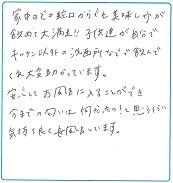 家中のどの蛇口からでも美味しい水が
飲めて大満足!! 子供達が自分で
キッチン以外の洗面所などで飲んで
くれ大変助かっています。
安心してお風呂に入ることができ
今までの匂いは何だったの!と思うくらい
気持ち良く長風呂しています。